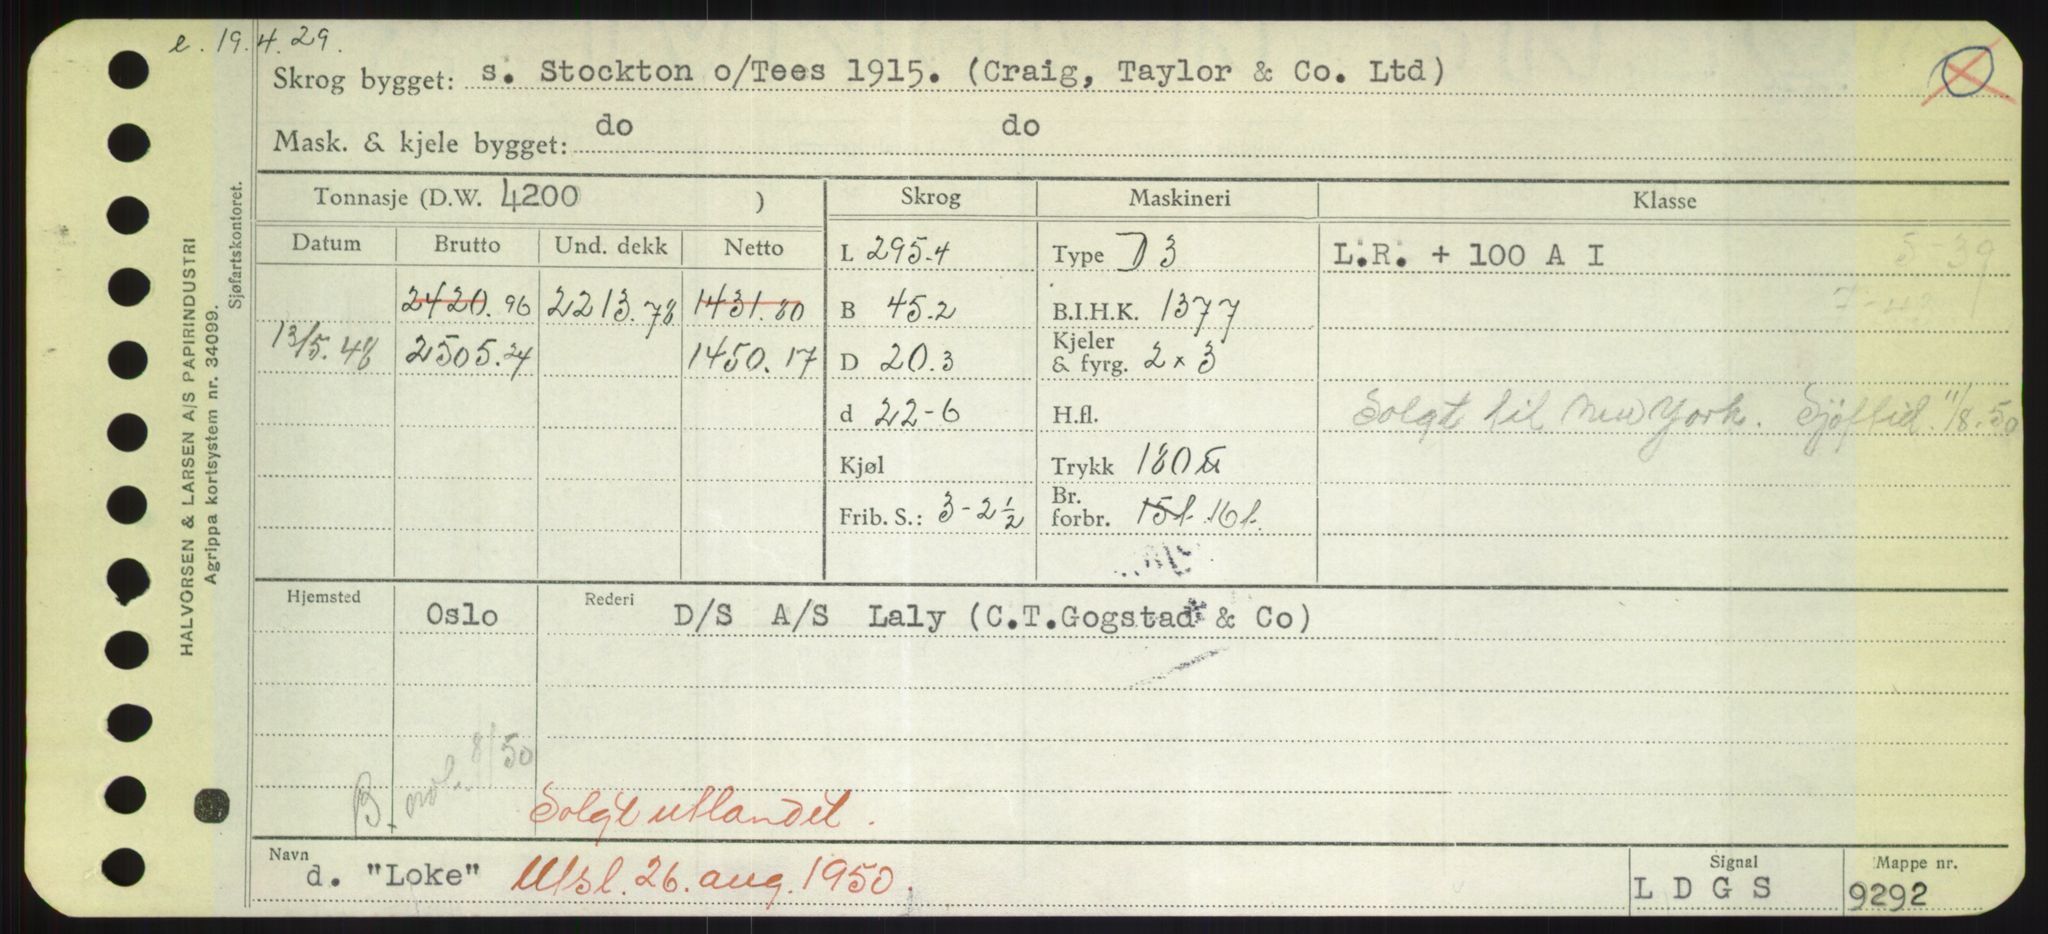 e. 19.4.29.
Skrog bygget: s. Stockton o/Tees 1915. (Craig, Taylor & Co. Ltd)
Mask. & kjele bygget: do do
Tonnasje (D.W. 4200 ) Skrog Maskineri Klasse
Datum Brutto Und. dekk Netto
L 295.4 Type D 3 L.R. + 100 A I 5-39
2420.96 2213.78 1431.80 B 45.2 B.I.H.K. 1377 7-48
13/5.48 2505.24 1450.17 D 20.3 Kjeler & fyrg. 2 x 3
d 22-6 H.fl. Solgt til New York. Sjöftid. 11/8.50
Kjøl Trykk 180
Frib. S.: 3-2½ Br. forbr. 15t. 16t.
Hjemsted Oslo Rederi D/S A/S Laly (C.T.Gogstad & Co)
B. 8/50
Solgt utlandet.
Navn d. "Loke" Utsl. 26. aug. 1950. Signal L D G S Mappe nr. 9292
HALVORSEN & LARSEN A/S PAPIRINDUSTRI
Agrippa kortsystem nr. 34099.
Sjøfartskontoret.